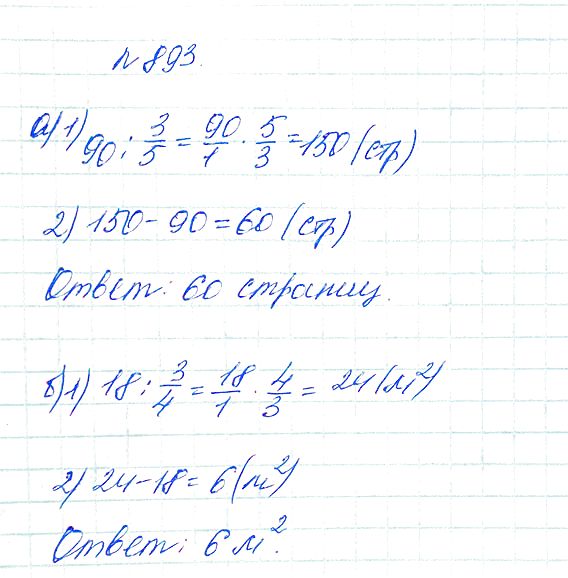 № 893.
а) 1) 90 : 3/5 = 90/1 · 5/3 = 150 (стр)
2) 150 - 90 = 60 (стр)
Ответ: 60 страниц.
б) 1) 18 : 3/4 = 18/1 · 4/3 = 24 (м²)
2) 24 - 18 = 6 (м²)
Ответ: 6 м².